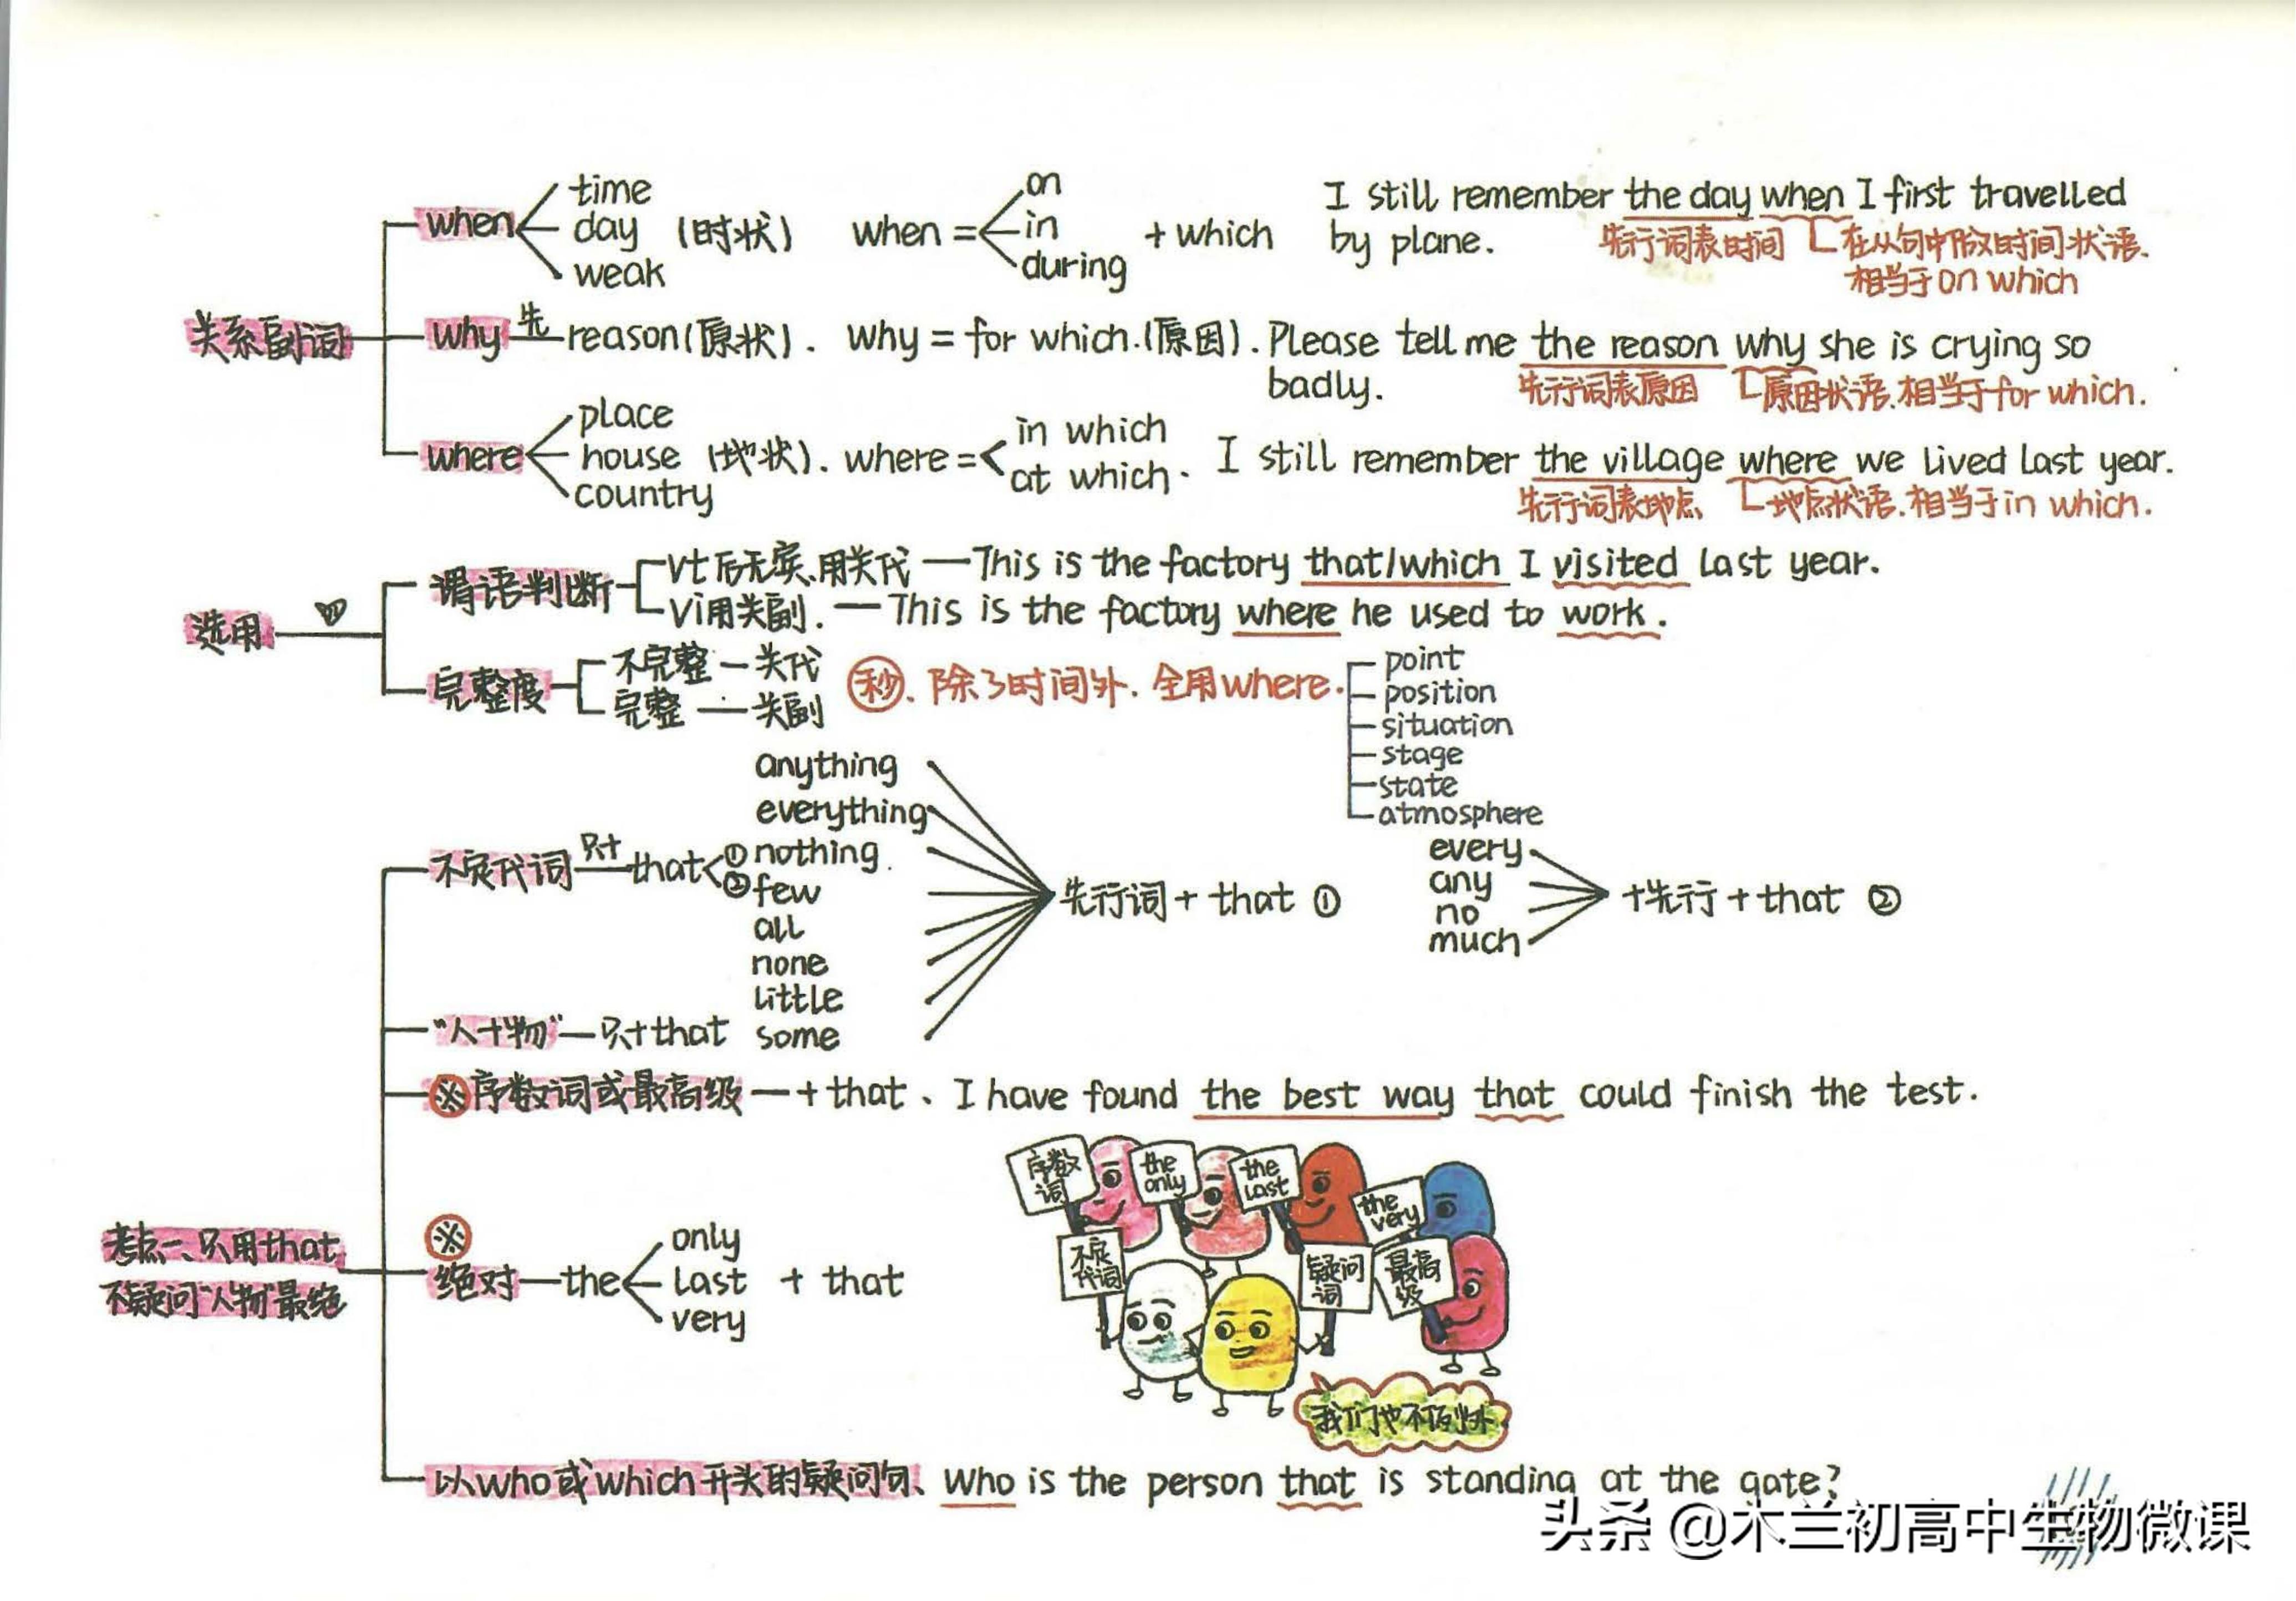 关系副词
when
time
day (时状)
weak
when =
on
in
during
+ which
I still remember the day when I first travelled
by plane.
先行词表时间
在从句中作时间状语.
相当于 on which
why 先 reason (原状). why = for which. (原因). Please tell me the reason why she is crying so
badly.
先行词表原因
原因状语.相当于 for which.
where
place
house (地状).
country
where =
in which
at which.
I still remember the village where we lived last year.
先行词表地点
地点状语.相当于 in which.
选用
谓语判断
vt后无宾.用关代 — This is the factory that/which I visited last year.
vi用关副. — This is the factory where he used to work.
完整度
不完整 — 关代
完整 — 关副
秒. 除了时间外. 全用where.
point
position
situation
stage
state
atmosphere
考点一、只用that
不疑问"人物"最绝
不定代词 只+ that ① ②
anything
everything
nothing
few
all
none
little
some
先行词 + that ①
every
any
no
much
+先行 + that ②
"人+物" — 只+that
※序数词或最高级 — + that、I have found the best way that could finish the test.
※
绝对 — the
only
last
very
+ that
序数词
the only
the last
the very
不定代词
疑问词
最高级
我们也不例外
以who或which开头的疑问句、Who is the person that is standing at the gate?
头条 @木兰初高中生物微课